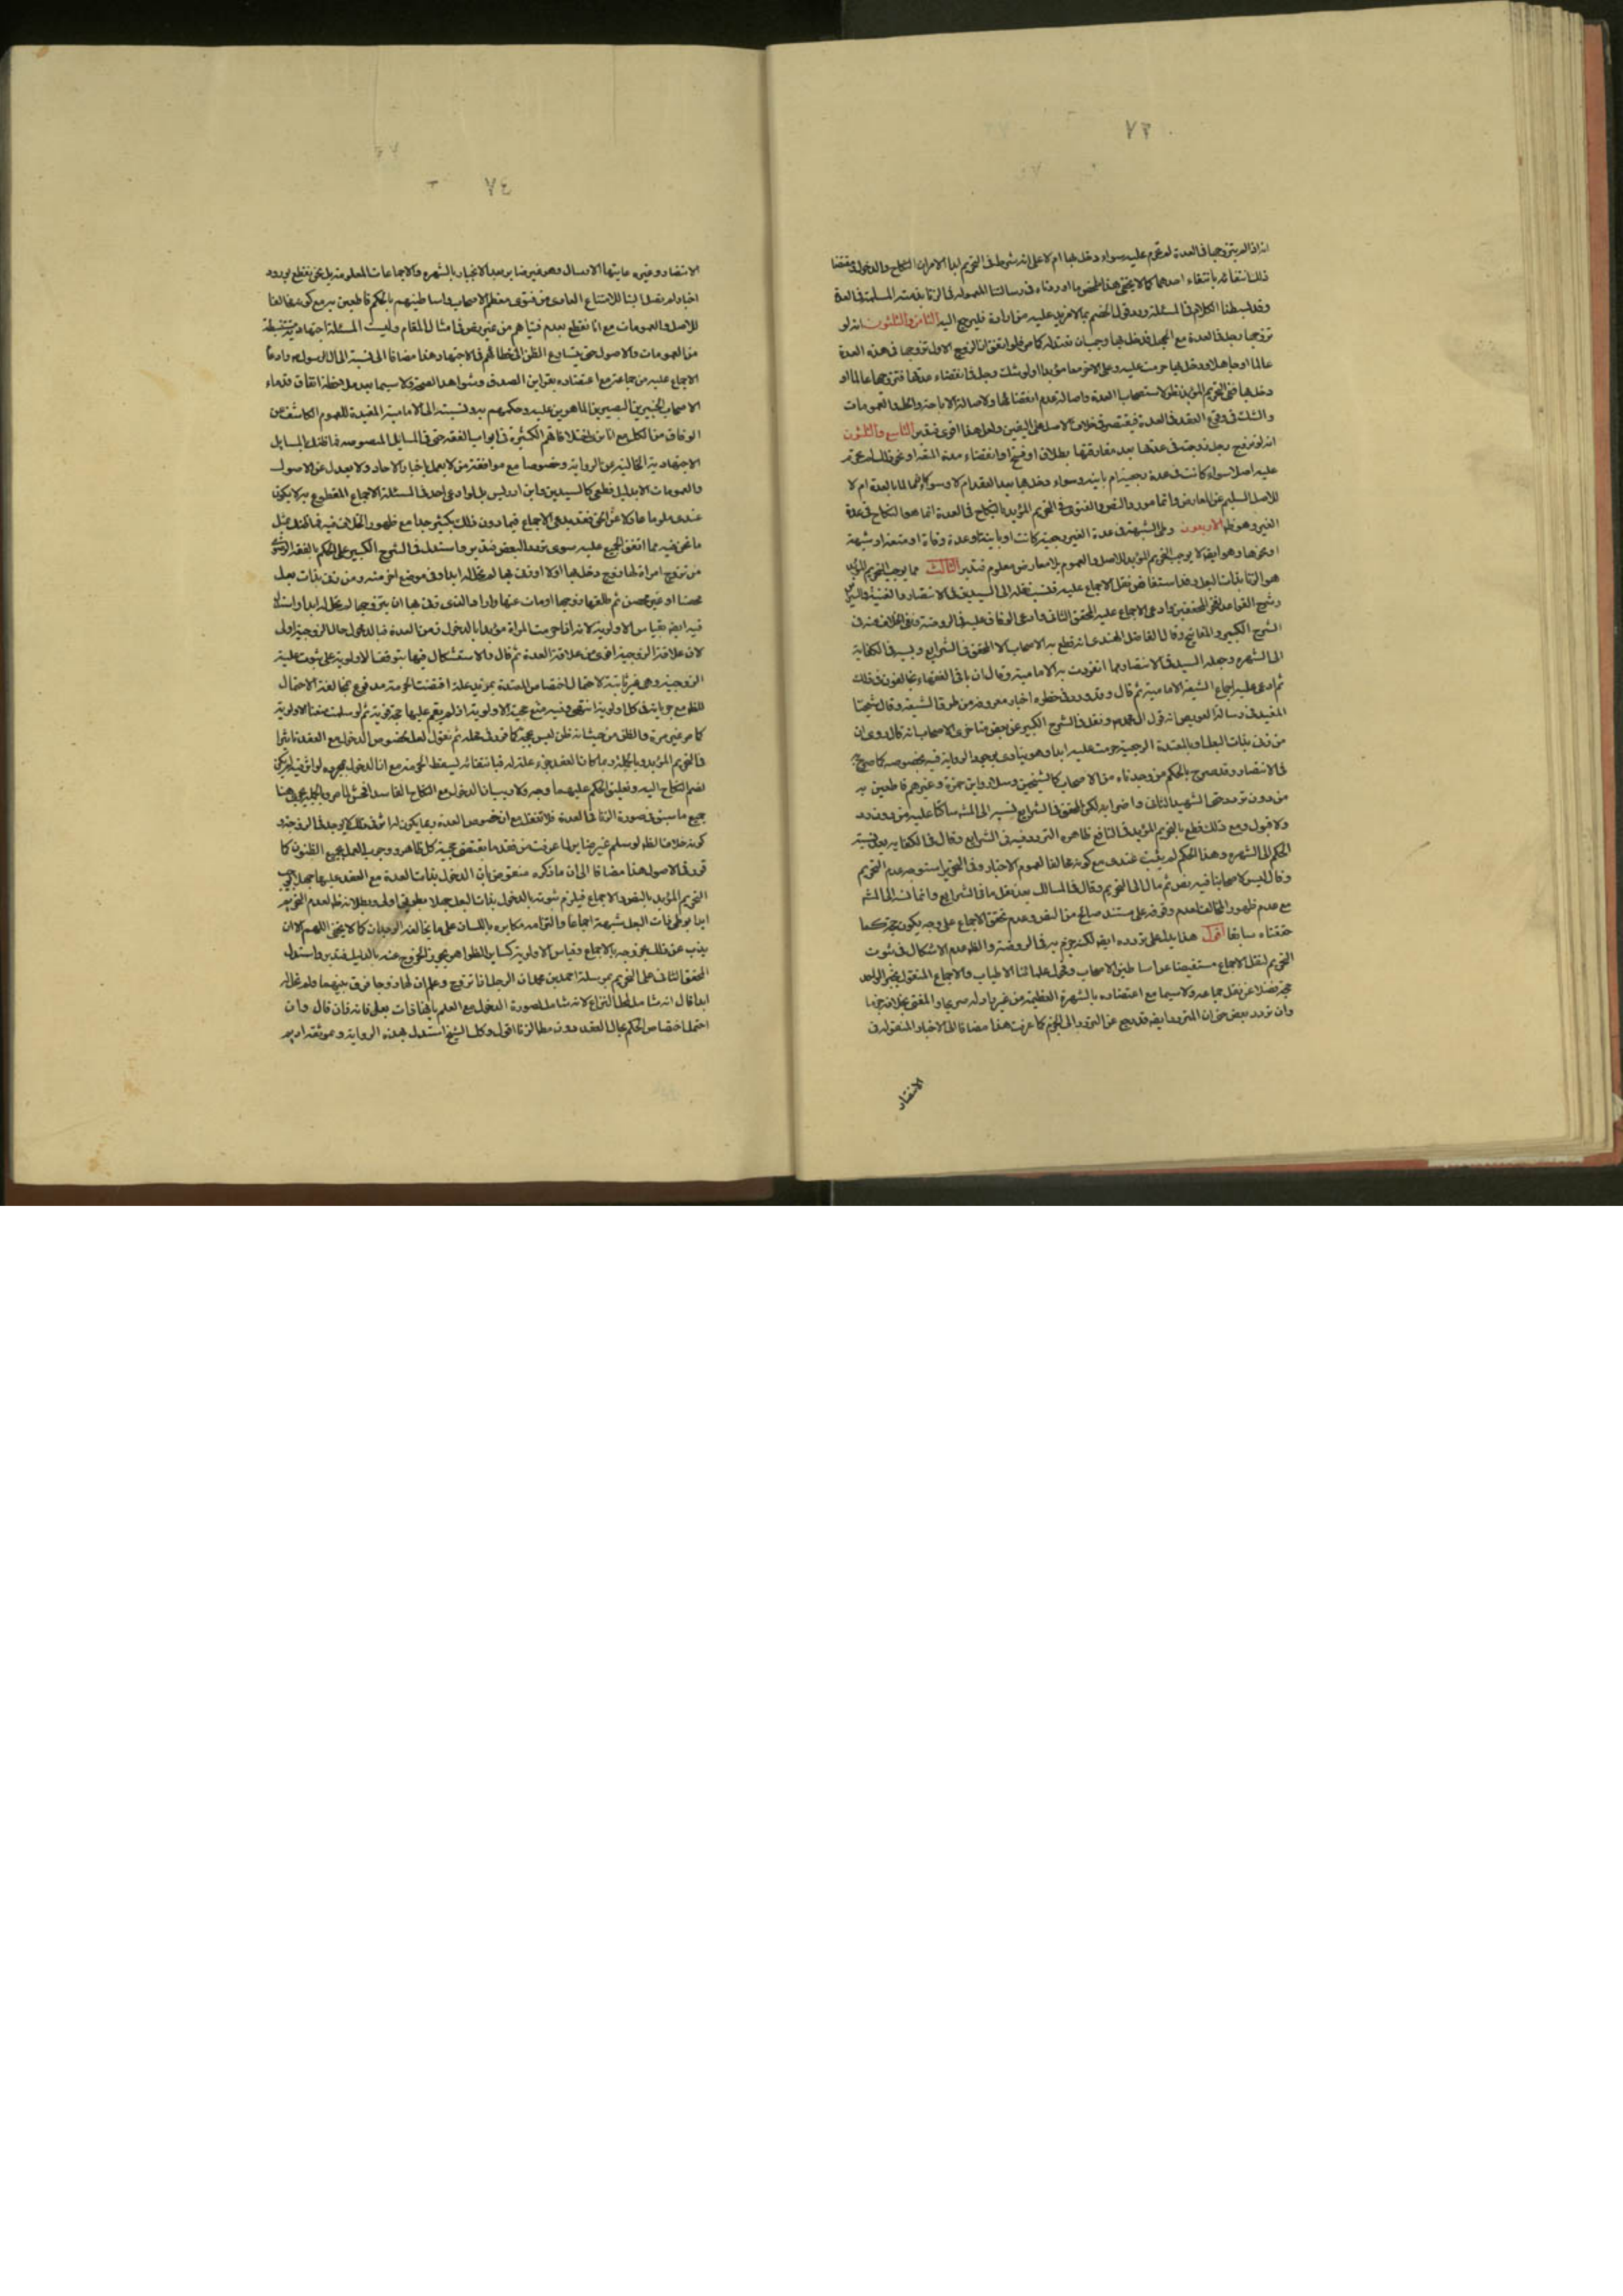 ٧٣
انه اذا لم يتزوجها فى العدة لم تحرم عليه سواء دخل بها ام لا على انه شرط فى التحريم ابدا الامران النكاح والدخول
ذلك انتفائه بانتفاء احدهما كما لا يخفى هذا ملخص ما اوردناه فى رسالتنا المعمولة فى الزنا فى العدة
وقد بسطنا الكلام فى المسئلة بما لا مزيد عليه من اراده فليرجع اليه الثامن والثلثون انه لو
تزوجها رجل فى العدة مع الجهل فدخل بها
عالما او جاهلا ودخل بها حرمت عليه
دخل بها فى التحريم المؤبد نظر لاستصحاب العدة واصالة عدم انقضائها ولاصالة الاباحة والحل والعمومات
والشك فى وقوع العقد فى العدة فيقتصر فى خلاف الاصل على اليقين ولعل هذا اقوى فتدبر التاسع والثلثون
انه لو تزوج رجل زوجته فى عدتها بعد مفارقتها بطلاق او فسخ او انقضاء مدة المتعة او نحو ذلك لم تحرم
عليه اصلا سواء كانت فى عدة رجعية ام باينة وسواء دخل بها بعد العقد ام لا وسواء كانا عالما بالعدة ام لا
للاصل السليم عن المعارض وانما مورد النص والفتوى فى التحريم المؤبد بالنكاح فى العدة انما هو النكاح فى عدة
الغير وهو ظ الاربعون وطى الشبهة فى عدة الغير رجعية كانت او باينة او عدة وفاة او متعة او شبهة
او نحوها وهو ايضا لا يوجب التحريم المؤبد للاصل والعموم بلا معارض معلوم فتدبر الثالث مما يوجب التحريم المؤبد
هو الزنا بذات البعل وقد استفاض نقل الاجماع عليه فنسب نقله الى السيد فى الانتصار والغنية والسرائر
وشرح القواعد وادعى الاجماع عليه المحقق الثانى وادعى الوفاق عليه فى الروضة ونفى الخلاف عنه فى
الشرح الكبير والمفاتيح وقال الفاضل الهندى انه قطع به الاصحاب الا المحقق فى الشرايع ونسبه فى الكفاية
الى الشهرة وجعله السيد فى الانتصار مما انفردت به الامامية وقال ان باقى الفقهاء يخالفون فى ذلك
ثم ادعى عليه اجماع الشيعة الامامية ثم قال وقد ورد فى حظره اخبار معروفة من طرق الشيعة وقال شيخنا
المفيد فى رسالة العويص انه قول آل محمد ونقل فى الشرح الكبير عن بعض متاخرى الاصحاب انه قال روى ان
من زنى بذات البعل او بالمعتدة الرجعية حرمت عليه ابدا وهو ينادى بوجود الرواية فيه بخصوصه كما صرح به
فى الانتصار وقد صرح بالحكم من وجدناه من الاصحاب كالشيخين وسلار وابن حمزة وغيرهم قاطعين به
من دون تردد حتى الشهيد الثانى واضرابه لكن المحقق فى الشرايع نسبه الى المشهور ساكتا عليه من دون رد
ولا قبول ومع ذلك قطع بالتحريم المؤبد فى النافع ظاهره التردد فيه فى الشرايع وقال فى الكفاية بعد نسبة
الحكم الى الشهرة وهذا الحكم لم يثبت عندى مع كونه مخالفا لعموم الاخبار وفى التحرير استوجه عدم التحريم
وقال ليس لاصحابنا فيه نص ثم مال الى التحريم وقال فى المسالك بعد نقل ما فى الشرايع وانما نسبه الى المشهور
مع عدم ظهور المخالف لعدم وقوفه على مستند صالح من النص وعدم تحقق الاجماع على وجه يكون حجة كما
حققناه سابقا اقول هذا يدل على تردده ايضا لكنه جزم به فى الروضة والظ عدم الاشكال فى ثبوت
التحريم لنقل الاجماع مستفيضا عن اساطين الاصحاب وفحول علمائنا الاطياب والاجماع المنقول بخبر الواحد
حجة فضلا عن نقل جماعة ولا سيما مع اعتضاده بالشهرة العظيمة
وان تردد بعض حتى ان المتردد ايضا قد رجع عن التردد الى الجزم كما عرفت هذا مضافا الى الاخبار المنقولة فى
الانتصار
٧٤
الانتصار وغيره غايتها الارسال وهو غير ضاير بعد الانجبار بالشهرة والاجماعات المعلومة بل نحن نقطع بورود
اخبار لم تصل الينا للامتناع العادى من فتوى معظم الاصحاب واساطينهم بالحكم قاطعين به مع كونه مخالفا
للاصل والعمومات مع انا نقطع بعدم فتياهم من غير نص فى امثال المقام وليست المسئلة اجتهادية مستنبطة
من العمومات والاصول حتى يتسارع الظن الى خطائهم فى الاجتهاد هذا مضافا الى نسبته الى آل الرسول ص وادعا
الاجماع عليه من جماعة مع اعتضاده بقراين الصدق وشواهد الصحة ولا سيما بعد ملاحظة اتفاق قدماء
الاصحاب الخبيرين البصيرين الماهرين عليه وحكمهم به ونسبته الى الامامية المفيدة للعموم الكاشف عن
الوفاق من الكل مع انا نرى اختلافاتهم الكثيرة فى ابواب الفقه حتى فى المسايل المنصوصة فما ظنك بالمسايل
الاجتهادية الخالية عن الرواية وخصوصا مع موافقة من لا يعمل باخبار الاحاد ولا يعدل عن الاصول
والعمومات الا بدليل قطعى كالسيدين وابن ادريس بل لو ادعى احد فى المسئلة الاجماع المقطوع به لا يكون
عندى ملوما
ما نحن فيه مما اتفق الجميع عليه سوى تردد البعض فتدبر واستدل فى الشرح الكبير على الحكم بالفقه الرضوى
من تزوج امراة لها زوج دخل بها اولا او زنى بها لم تحل له ابدا وفى موضع اخر منه ومن زنى بذات بعل
محصنا او غير محصن ثم طلقها زوجها او مات عنها واراد الذى زنى بها ان يتزوجها لم تحل له ابدا واستدل
فيه ايضا بقياس الاولوية لانه اذا حرمت المراة مؤبدا بالدخول زمن العدة فبالدخول حال الزوجية اولى
لان علاقة الزوجية اقوى من علاقة العدة ثم قال والاستشكال فيها بتوقف الاولوية على ثبوت علية
الزوجية وهى غير ثابتة لاحتمال اختصاص المعتدة بمزيد علة اقتضت الحرمة مدفوع بمخالفة الاحتمال
للظ مع جريانه فى كل اولوية انتهى وفيه منع حجية الاولوية اذ لم يقم عليها حجة قوية ثم لو سلمت منعنا الاولوية
كما مر غير مرة والظن من حيث انه ظن ليس بحجة كما قرر فى محله ثم نقول لعل لخصوص الدخول مع العقد تاثيرا
فى التحريم المؤبد وبالجملة ربما كان العقد جزء علة له فبانتفائه يسقط الحرمة مع ان الدخول بمجرده لو اثر فيه لم يكن
لضم النكاح اليه وتعليق الحكم عليهما وجه ولا ريب ان الدخول مع النكاح الفاسد افحش لما مر وبالجملة يجرى هنا
جميع ما سبق فى صورة الزنا فى العدة فلا تغفل مع ان خصوص العدة ربما يكون له اثر فى ذلك لا يوجد فى الزوجة و
كونه خلاف الظ لو سلم غير ضاير لما عرفت من فقد ما يقتضى حجية كل ظاهر ووجوب العمل بجميع الظنون كما
قرر فى الاصول هذا مضافا الى ان ما ذكره منقوض بان الدخول بذات العدة مع العقد عليها جهلا يوجب
التحريم المؤبد بالنص والاجماع فيلزم ثبوته بالدخول بذات البعل جهلا بطريق اولى وبطلانه ظ لعدم التحريم
ابدا بوطى ذات البعل شبهة اجماعا والتزامه مكابرة باللسان على ما يخالفه الوجدان كما لا يخفى اللهم الا ان
يذب عن ذلك بخروجه بالاجماع وقياس الاولوية كساير الظواهر يجوز الخروج عنه بالدليل فتدبر واستدل
المحقق الثانى على التحريم بمرسلة احمد بن محمد ان الرجل اذا تزوج وعلم ان لها زوجا فرق بينهما ولم تحل له
ابدا قال انه شامل لمحل النزاع لانه شامل لصورة الدخول مع العلم بانها ذات بعل فانه زان قال وان
احتمل اختصاص الحكم بحال العقد دون مطلق الزنا اقول وكل الشيخ استدل بهذه الرواية وبموثقة اديم